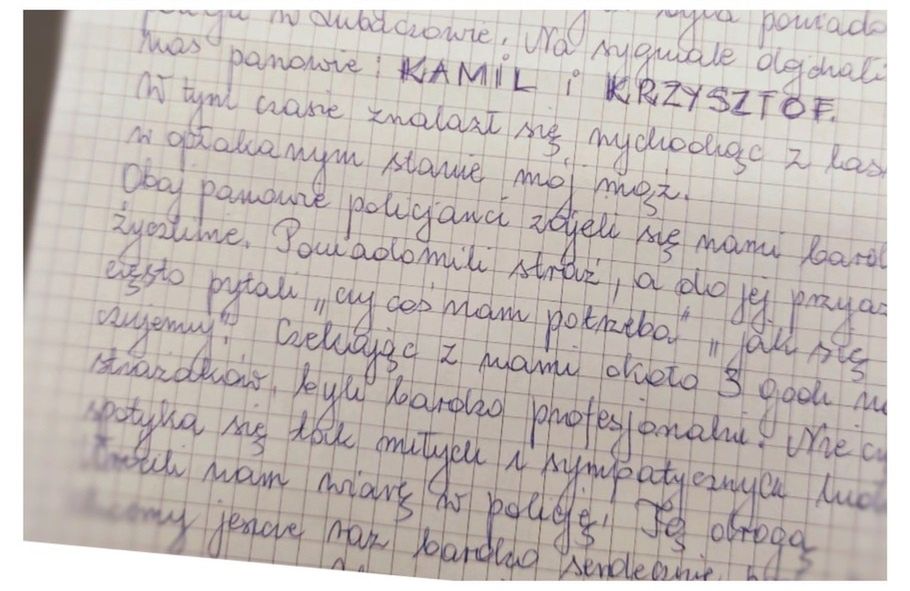 w Lubaczowie. Na sygnale dojechali
nas panowie: KAMIL i KRZYSZTOF.
W tym czasie znalazł się wychodząc z
w opłakanym stanie mój mąż.
Obaj panowie policjanci zajeli się nami
życzliwie. Powiadomili straż, a do jej
często pytali „czy coś nam potrzeba" „jak się
czujemy". Czekając z nami około 3 godz na
strażaków, byli bardzo profesjonalni. Nie
spotyka się tak miłych i sympatycznych
nam wiarę w policję. Tą drogą
jeszcze raz bardzo serdecznie